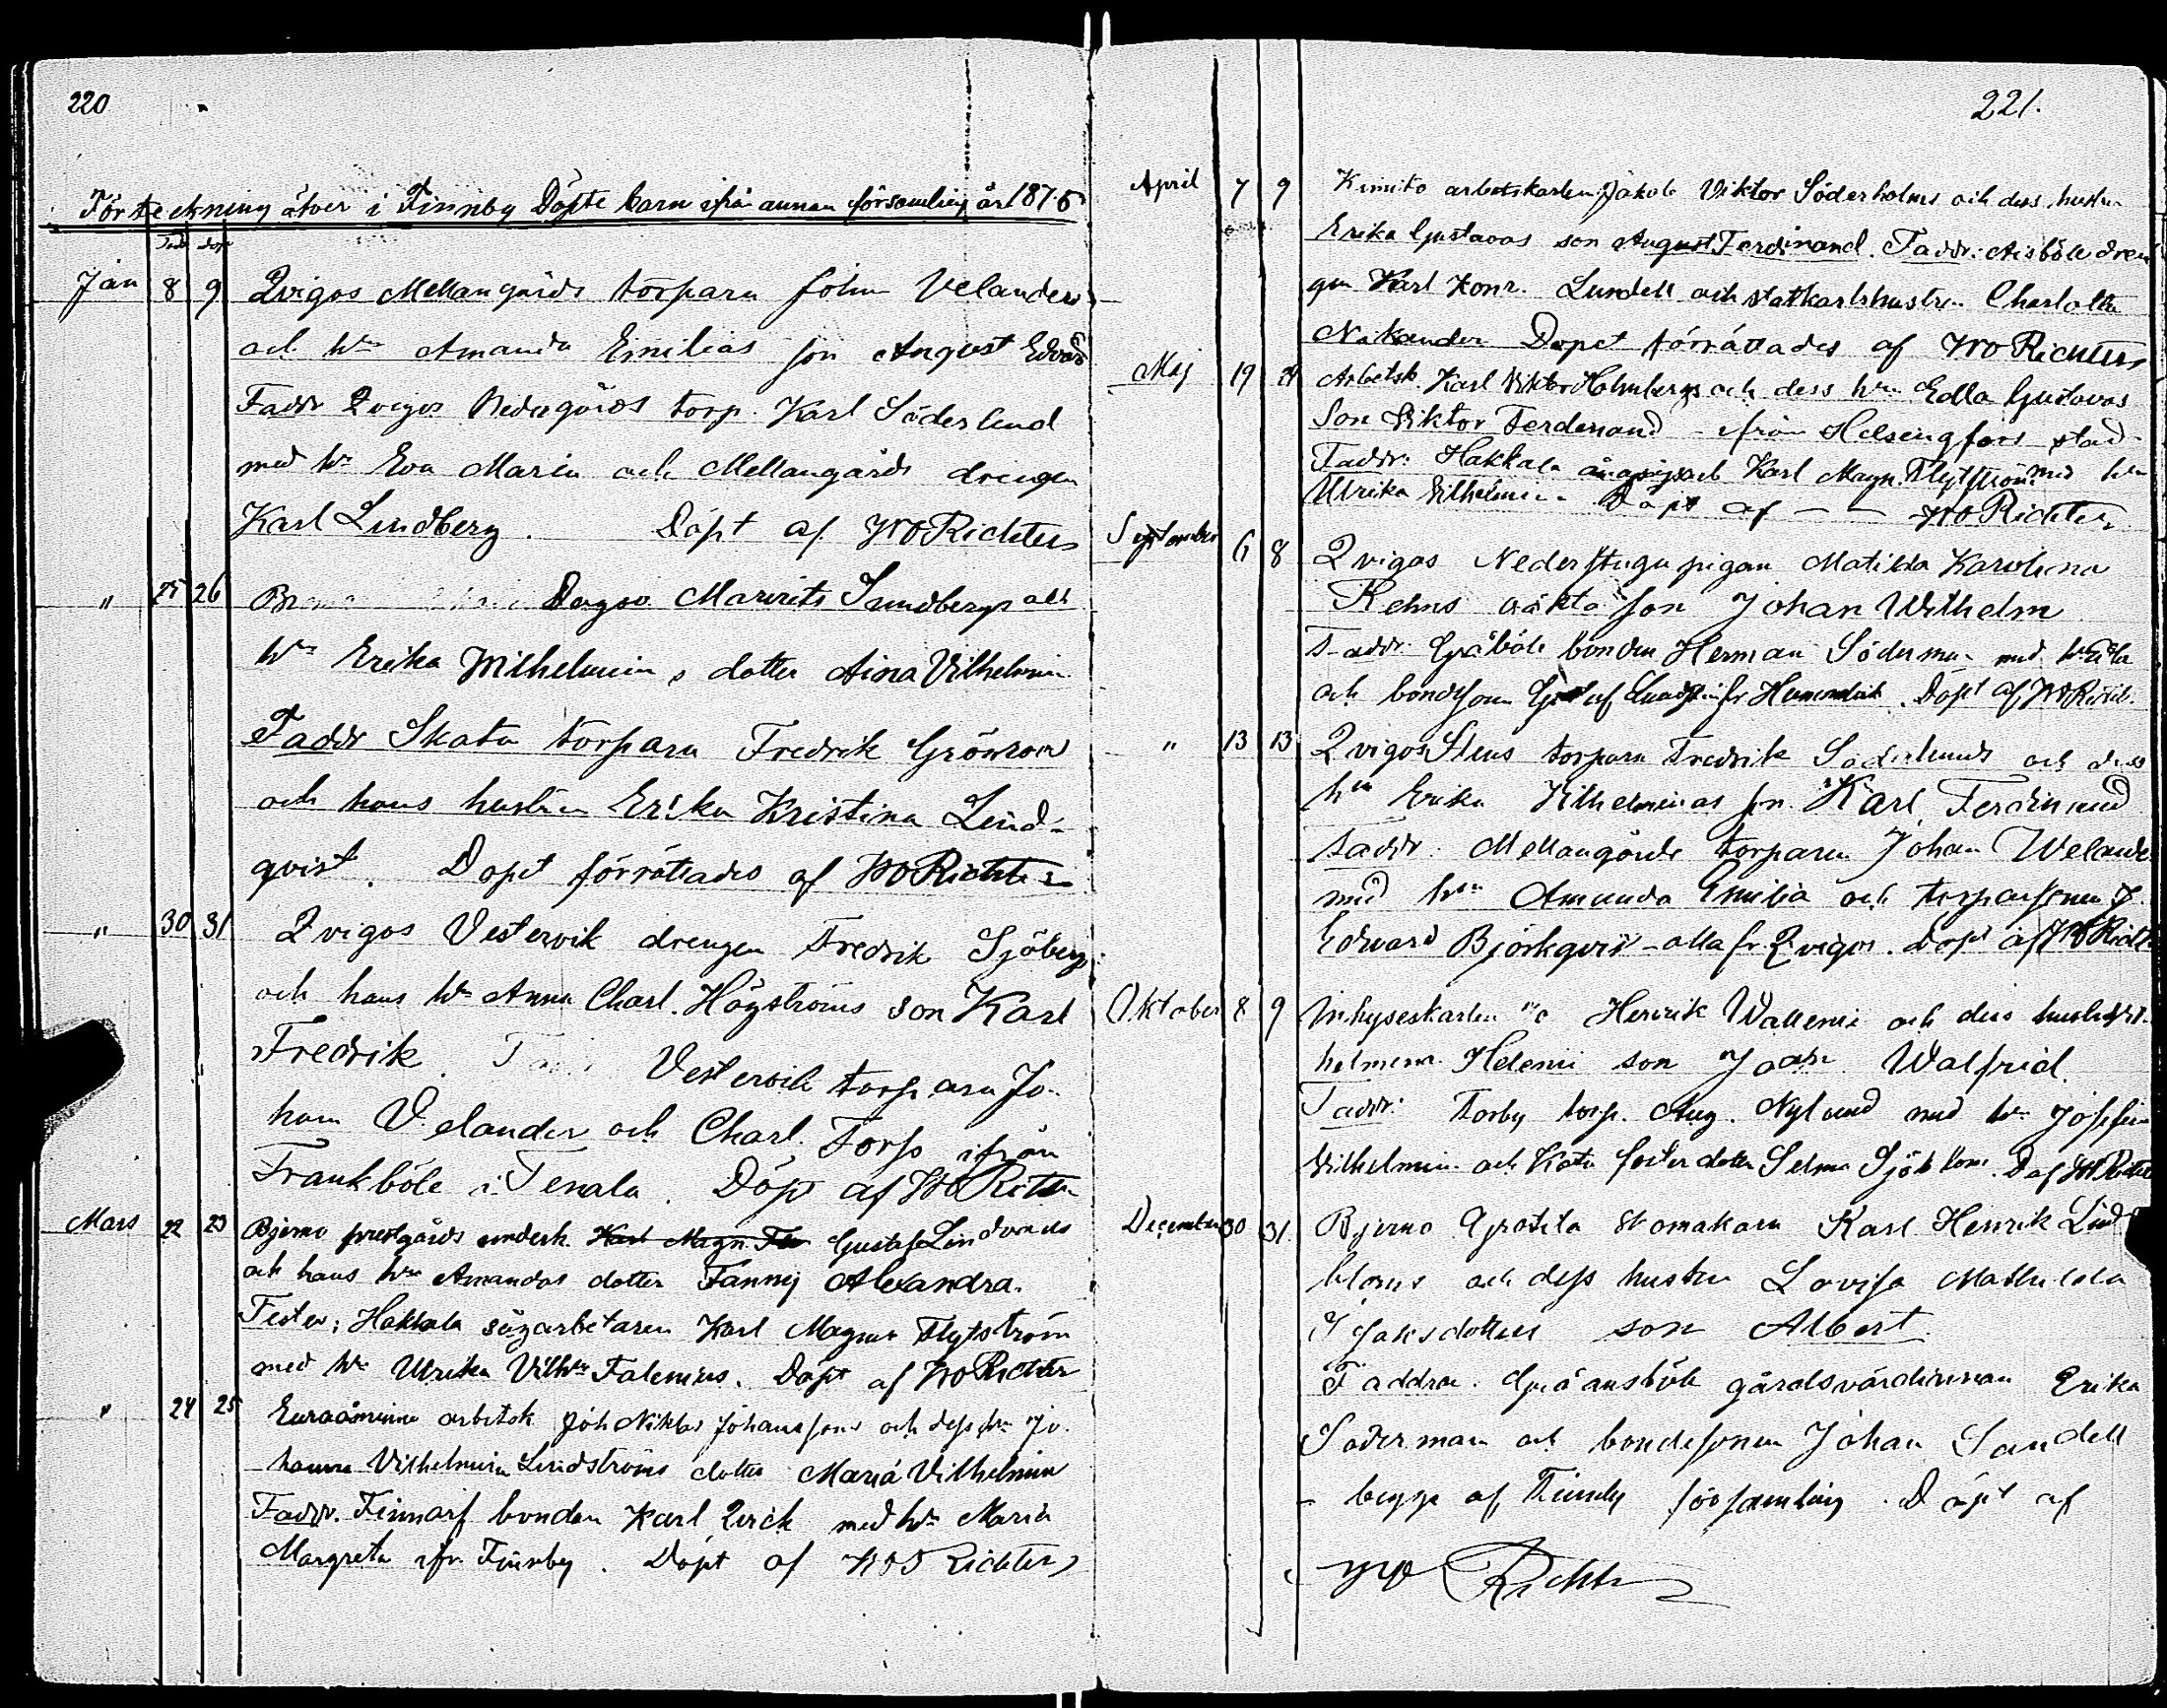 220
Förteckning öfver i Finnby Döpte barn ifrån annan församling år 1876
Född Döpt
Jan 8 9 Qvigos Mellangårds torparn John Velanders
och hn Amanda Emilias son August Edvard
Faddr Qvigos Nedergårds torp. Karl Söderlund
med hn Eva Maria och Mellangårds drengen
Karl Lindberg. Döpt af WO Richter
" 25 26 Mauritz Sundbergs och
hns Erika Wilhelminas dotter Aina Vilhelmina
Faddr Skata torparn Fredrik Grönroos
och hans hustru Erika Kristina Lind-
qvist. Dopet förrättades af WO Richter
" 30 31 Qvigos Vestervik drengen Fredrik Sjöberg
och hans hn Anna Charl. Högströms son Karl
Fredrik. Vestervik torparn Jo-
han Velander och Charl. Fors ifrån
Frankböle i Tenala. Döpt af WO Richter
Mars 22 23 Bjerno prestgårds Karl Magn. Gustaf Lindroos
och hans hn Amandas dotter Fanny Alexandra.
Hakkala sågarbetaren Karl Magnus Flytström
med hn Ulrika Vilhna Falenius. Döpt af WO Richter
" 24 25 Euraåminne arbetsk Joh Niklas Johanssons och dess hn Jo-
hanna Vilhelmina Lindströms dotter Maria Vilhelmina
Faddr. Finnarf bonden Karl Qvick med hn Maria
Margreta ifr. Finnby. Döpt af WO Richter
221.
April 7 9 Kimito arbetskarlen Jakob Viktor Söderholms och dess hustru
Erika Gustavas son August Ferdinand. Faddr: Aisböle dren
gen Karl Konr. Lundell och statkarlshustrun Charlotta
Nikander Dopet förrättades af WO Richter
Maj 19 Arbetsk. Karl Viktor Holmbergs och dess hn Edla Gustavas
Son Viktor Ferdenand ifrån Helsingfors stad.
Faddr: Hakkala Karl Magn. Flytström med hn
Ulrika Vilhelmina Döpt af — — WO Richter
September 6 8 Qvigos Nederstugu pigan Matilda Karolina
Rehns oäkta son Johan Wilhelm
Faddr. Gråböle bonden Herman Söderman med hn
och bondsonen Gustaf Döpt af WO Richt.
" 13 13 Qvigos torparn Fredrik Söderlunds och dess
hn Erika Vilhelminas son Karl Ferdinand
Faddr: Mellangårds torparen Johan Welander
med hn Amanda Emilia och torparsonen J.
Edvard Björkqvist – alla fr Qvigos. Döpt af WO Richt
Oktober 8 9 Inhyseskarlen Henrik Wallenii och dess hustru Vil-
helmina Helenii son Walfrid.
Faddr: Torby torp. Aug. Nylund med hn Josefina
Vilhelmina och foster dotter Selma Sjöblom. D af WO Richter
December 30 31. Bjerno skomakarn Karl Henrik Lind
bloms och dess hustru Lovisa Mathilda
Isaksdotters son Albert.
Faddra. Gråansböle gårdsvärdinnan Erika
Söderman och bondesonen Johan Sandell
– begge af Finnby församling. Döpt af
WO Richter